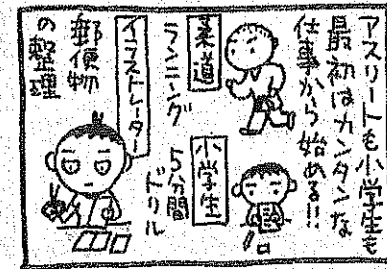 アスリートも小学生も
最初はカンタンな
仕事から始める!!
柔道
ランニング
小学生
5分間
ドリル
イラストレーター
郵便物
の整理